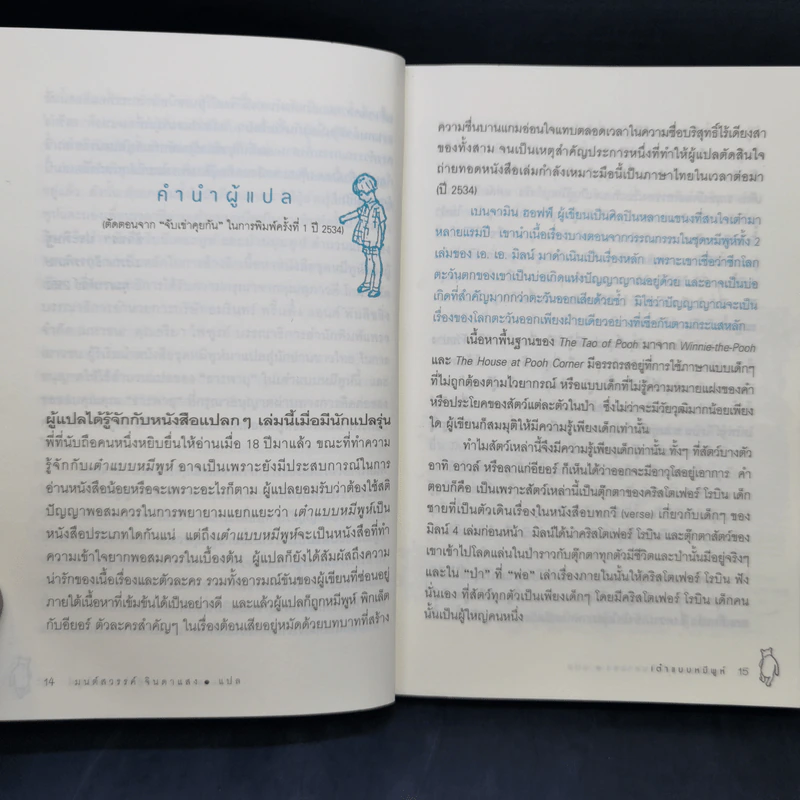 คำนำผู้แปล
(ตัดตอนจาก "จับเข่าคุยกัน" ในการพิมพ์ครั้งที่ 1 ปี 2534)
ผู้แปลได้รู้จักกับหนังสือแปลกๆ เล่มนี้เมื่อมีนักแปลรุ่น
พี่ที่นับถือคนหนึ่งหยิบยื่นให้อ่านเมื่อ 18 ปีมาแล้ว ขณะที่ทำความ
รู้จักกับเต๋าแบบหมีพูห์ อาจเป็นเพราะยังมีประสบการณ์ในการ
อ่านหนังสือน้อยหรือจะเพราะอะไรก็ตาม ผู้แปลยอมรับว่าต้องใช้สติ
ปัญญาพอสมควรในการพยายามแยกแยะว่า เต๋าแบบหมีพูห์เป็น
หนังสือประเภทใดกันแน่ แต่ถึงเต๋าแบบหมีพูห์จะเป็นหนังสือที่ทำ
ความเข้าใจยากพอสมควรในเบื้องต้น ผู้แปลก็ยังได้สัมผัสถึงความ
น่ารักของเนื้อเรื่องและตัวละคร รวมทั้งอารมณ์ขันของผู้เขียนที่ซ่อนอยู่
ภายใต้เนื้อหาที่เข้มข้นได้เป็นอย่างดี และแล้วผู้แปลก็ถูกหมีพูห์ พิกเล็ต
กับอียอร์ ตัวละครสำคัญๆ ในเรื่องต้อนเสียอยู่หมัดด้วยบทบาทที่สร้าง
14 มนต์สวรรค์ จินดาแสง ● แปล
ความชื่นบานแกมอ่อนใจแทบตลอดเวลาในความซื่อบริสุทธิ์ไร้เดียงสา
ของทั้งสาม จนเป็นเหตุสำคัญประการหนึ่งที่ทำให้ผู้แปลตัดสินใจ
ถ่ายทอดหนังสือเล่มกำลังเหมาะมือนี้เป็นภาษาไทยในเวลาต่อมา
(ปี 2534)
เบนจามิน ฮอฟฟ์ ผู้เขียนเป็นศิลปินหลายแขนงที่สนใจเต๋ามา
หลายแรมปี เขานำเนื้อเรื่องบางตอนจากวรรณกรรมในชุดหมีพูห์ทั้ง 2
เล่มของ เอ. เอ. มิลน์ มาดำเนินเป็นเรื่องหลัก เพราะเขาเชื่อว่าซีกโลก
ตะวันตกของเขาเป็นบ่อเกิดแห่งปัญญาญาณอยู่ด้วย และอาจเป็นบ่อ
เกิดที่สำคัญมากกว่าตะวันออกเสียด้วยซ้ำ มิใช่ว่าปัญญาญาณจะเป็น
เรื่องของโลกตะวันออกเพียงฝ่ายเดียวอย่างที่เชื่อกันตามกระแสหลัก
เนื้อหาพื้นฐานของ The Tao of Pooh มาจาก Winnie-the-Pooh
และ The House at Pooh Corner มีอรรถรสอยู่ที่การใช้ภาษาแบบเด็กๆ
ที่ไม่ถูกต้องตามไวยากรณ์ หรือแบบเด็กที่ไม่รู้ความหมายแฝงของคำ
หรือประโยคของสัตว์แต่ละตัวในป่า ซึ่งไม่ว่าจะมีวัยวุฒิมากน้อยเพียง
ใด ผู้เขียนก็สมมุติให้มีความรู้เพียงเด็กเท่านั้น
ทำไมสัตว์เหล่านี้จึงมีความรู้เพียงเด็กเท่านั้น ทั้งๆ ที่สัตว์บางตัว
อาทิ อาวล์ หรือลาแก่อียอร์ ก็เห็นได้ว่าออกจะมีอาวุโสอยู่เอาการ คำ
ตอบก็คือ เป็นเพราะสัตว์เหล่านี้เป็นตุ๊กตาของคริสโตเฟอร์ โรบิน เด็ก
ชายที่เป็นตัวเดินเรื่องในหนังสือบทกวี (verse) เกี่ยวกับเด็กๆ ของ
มิลน์ 4 เล่มก่อนหน้า มิลน์ได้นำคริสโตเฟอร์ โรบิน และตุ๊กตาสัตว์ของ
เขาเข้าไปโลดแล่นในป่าราวกับตุ๊กตาทุกตัวมีชีวิตและป่านั้นมีอยู่จริงๆ
และใน "ป่า" ที่ "พ่อ" เล่าเรื่องภายในนั้นให้คริสโตเฟอร์ โรบิน ฟัง
นั่นเอง ที่สัตว์ทุกตัวเป็นเพียงเด็กๆ โดยมีคริสโตเฟอร์ โรบิน เด็กคน
นั้นเป็นผู้ใหญ่คนหนึ่ง
เต๋าแบบหมีพูห์ 15